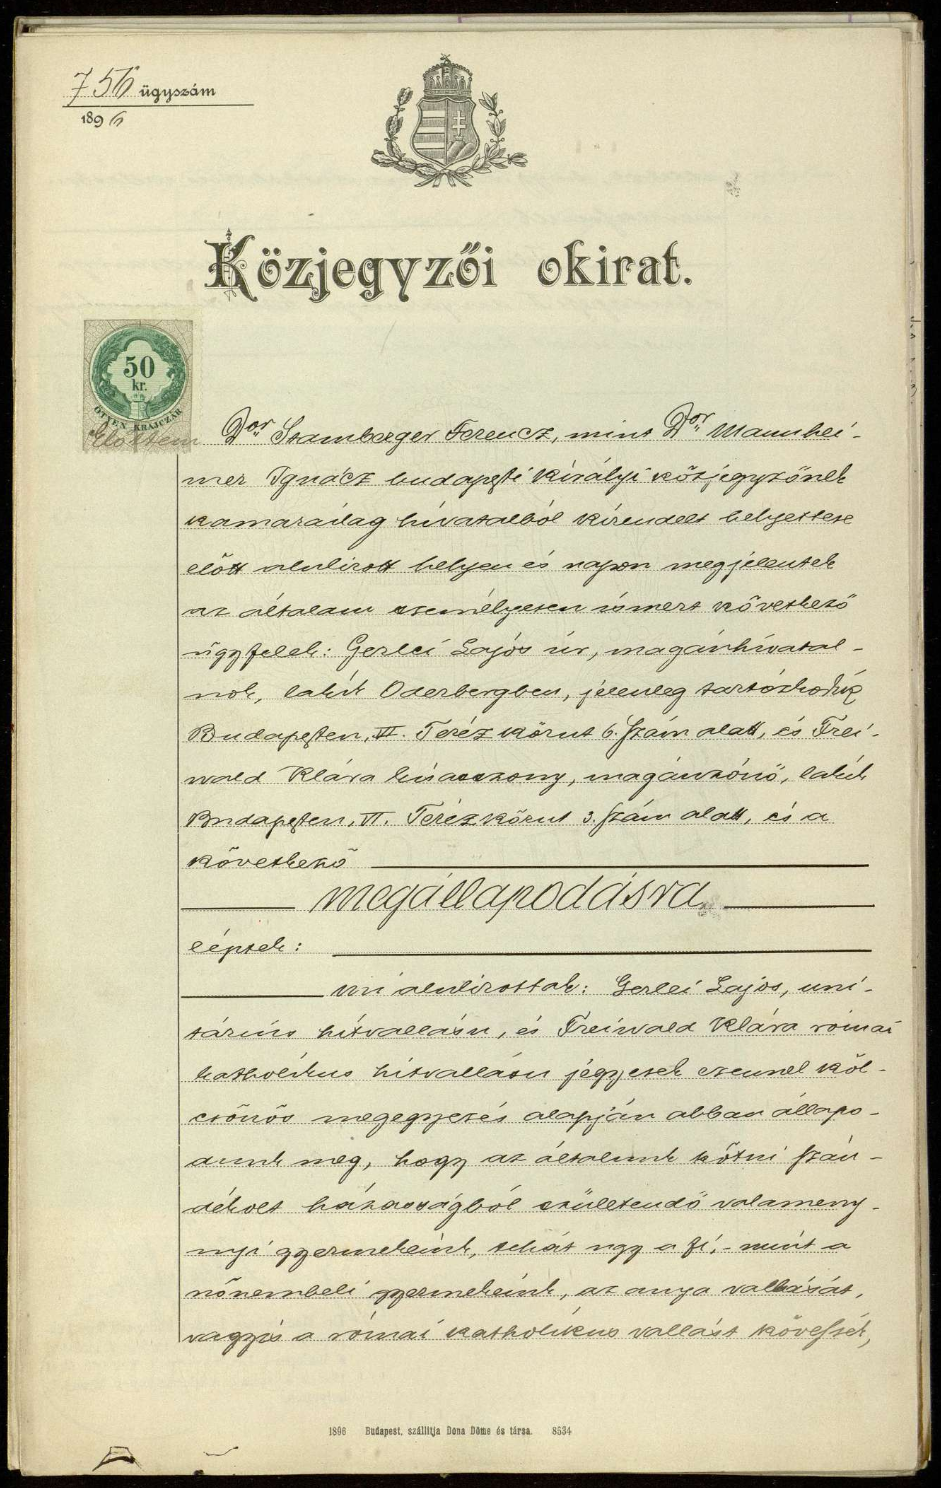 756 ügyszám
1896
Közjegyzői okirat.
50
kr.
ÖTVEN KRAJCZÁR
Előttem Dor Stamberger Ferencz, mint Dor Mannhei-
mer Ignácz budapesti királyi közjegyzőnek
kamarailag hivatalból kirendelt helyettese
előtt alulirott helyen és napon megjelentek
az általam személyesen ismert következő
ügyfelek: Gerlei Lajos úr, magánhivatal-
nok, lakik Oderbergben, jelenleg tartózkodik
Budapesten, VI. Teréz körut 6. szám alatt, és Frei-
wald Klára kisasszony, magánzónő, lakik
Budapesten, VI. Teréz körut 3. szám alatt, és a
következő
megállapodásra
léptek:
Mi alulirottak: Gerlei Lajos, uni-
tárius hitvallásu, és Freiwald Klára római
katholikus hitvallásu jegyesek ezennel köl-
csönös megegyezés alapján abban állapo-
dunk meg, hogy az általunk kötni szán-
dékolt házasságból születendő valameny-
nyi gyermekeink, tehát ugy a fi,- mint a
nőnembeli gyermekeink, az anya vallását,
vagyis a római katholikus vallást kövessék,
1896 Budapest, szállitja Dona Döme és társa. 8534